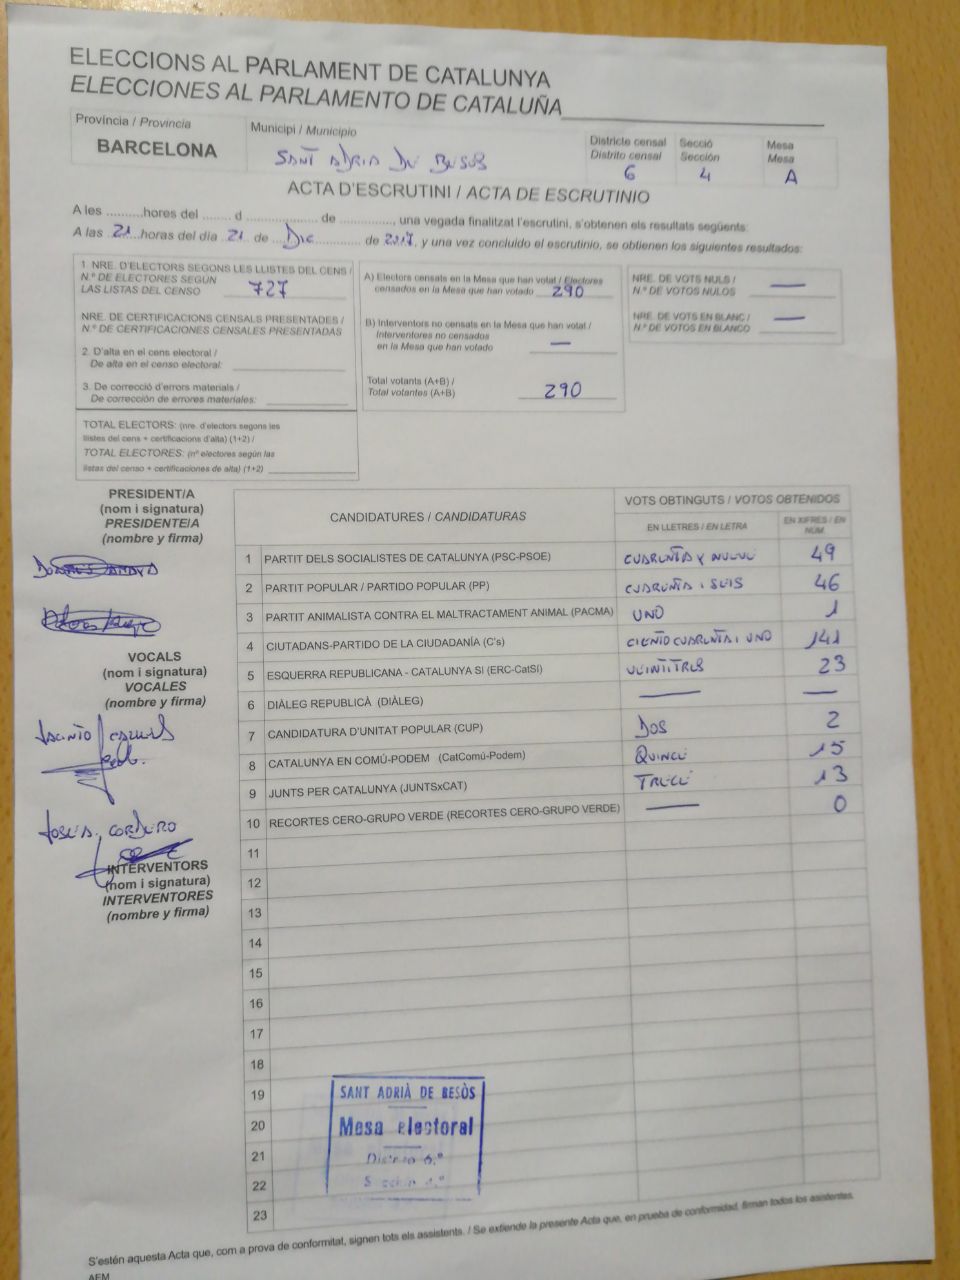 ELECCIONS AL PARLAMENT DE CATALUNYA
ELECCIONES AL PARLAMENTO DE CATALUÑA
Província / Provincia
BARCELONA
Municipi / Municipio
SANT ADRIA DE BESOS
Districte censal
Distrito censal
6
Secció
Sección
4
Mesa
Mesa
A
ACTA D'ESCRUTINI / ACTA DE ESCRUTINIO
A les ..........hores del ........ d .................... de ..............., una vegada finalitzat l'escrutini, s'obtenen els resultats següents:
A las 21 horas del día 21 de Dic de 2017, y una vez concluido el escrutinio, se obtienen los siguientes resultados:
1. NRE. D'ELECTORS SEGONS LES LLISTES DEL CENS /
N.º DE ELECTORES SEGÚN
LAS LISTAS DEL CENSO 727
NRE. DE CERTIFICACIONS CENSALS PRESENTADES /
N.º DE CERTIFICACIONES CENSALES PRESENTADAS
2. D'alta en el cens electoral /
De alta en el censo electoral:
3. De correcció d'errors materials /
De corrección de errores materiales:
TOTAL ELECTORS: (nre. d'electors segons les
llistes del cens + certificacions d'alta) (1+2) /
TOTAL ELECTORES: (nº electores según las
listas del censo + certificaciones de alta) (1+2)
A) Electors censats en la Mesa que han votat / Electores
censados en la Mesa que han votado 290
B) Interventors no censats en la Mesa que han votat /
Interventores no censados
en la Mesa que han votado —
Total votants (A+B) /
Total votantes (A+B) 290
NRE. DE VOTS NULS /
N.º DE VOTOS NULOS —
NRE. DE VOTS EN BLANC /
N.º DE VOTOS EN BLANCO —
PRESIDENT/A
(nom i signatura)
PRESIDENTE/A
(nombre y firma)
VOCALS
(nom i signatura)
VOCALES
(nombre y firma)
JACINTO
JOSE A. CORDERO
INTERVENTORS
(nom i signatura)
INTERVENTORES
(nombre y firma)
CANDIDATURES / CANDIDATURAS
VOTS OBTINGUTS / VOTOS OBTENIDOS
EN LLETRES / EN LETRA
EN XIFRES / EN NÚM.
1 PARTIT DELS SOCIALISTES DE CATALUNYA (PSC-PSOE) CUARENTA Y NUEVE 49
2 PARTIT POPULAR / PARTIDO POPULAR (PP) CUARENTA i SEIS 46
3 PARTIT ANIMALISTA CONTRA EL MALTRACTAMENT ANIMAL (PACMA) UNO 1
4 CIUTADANS-PARTIDO DE LA CIUDADANÍA (C's) CIENTO CUARENTA i UNO 141
5 ESQUERRA REPUBLICANA - CATALUNYA SÍ (ERC-CatSí) VEINTITRES 23
6 DIÀLEG REPUBLICÀ (DIÀLEG) — —
7 CANDIDATURA D'UNITAT POPULAR (CUP) DOS 2
8 CATALUNYA EN COMÚ-PODEM (CatComú-Podem) QUINCE 15
9 JUNTS PER CATALUNYA (JUNTSxCAT) TRECE 13
10 RECORTES CERO-GRUPO VERDE (RECORTES CERO-GRUPO VERDE) — 0
11
12
13
14
15
16
17
18
19
20
21
22
23
SANT ADRIÀ DE BESÒS
Mesa electoral
6.º
S'estén aquesta Acta que, com a prova de conformitat, signen tots els assistents. / Se extiende la presente Acta que, en prueba de conformidad, firman todos los asistentes.
AEM